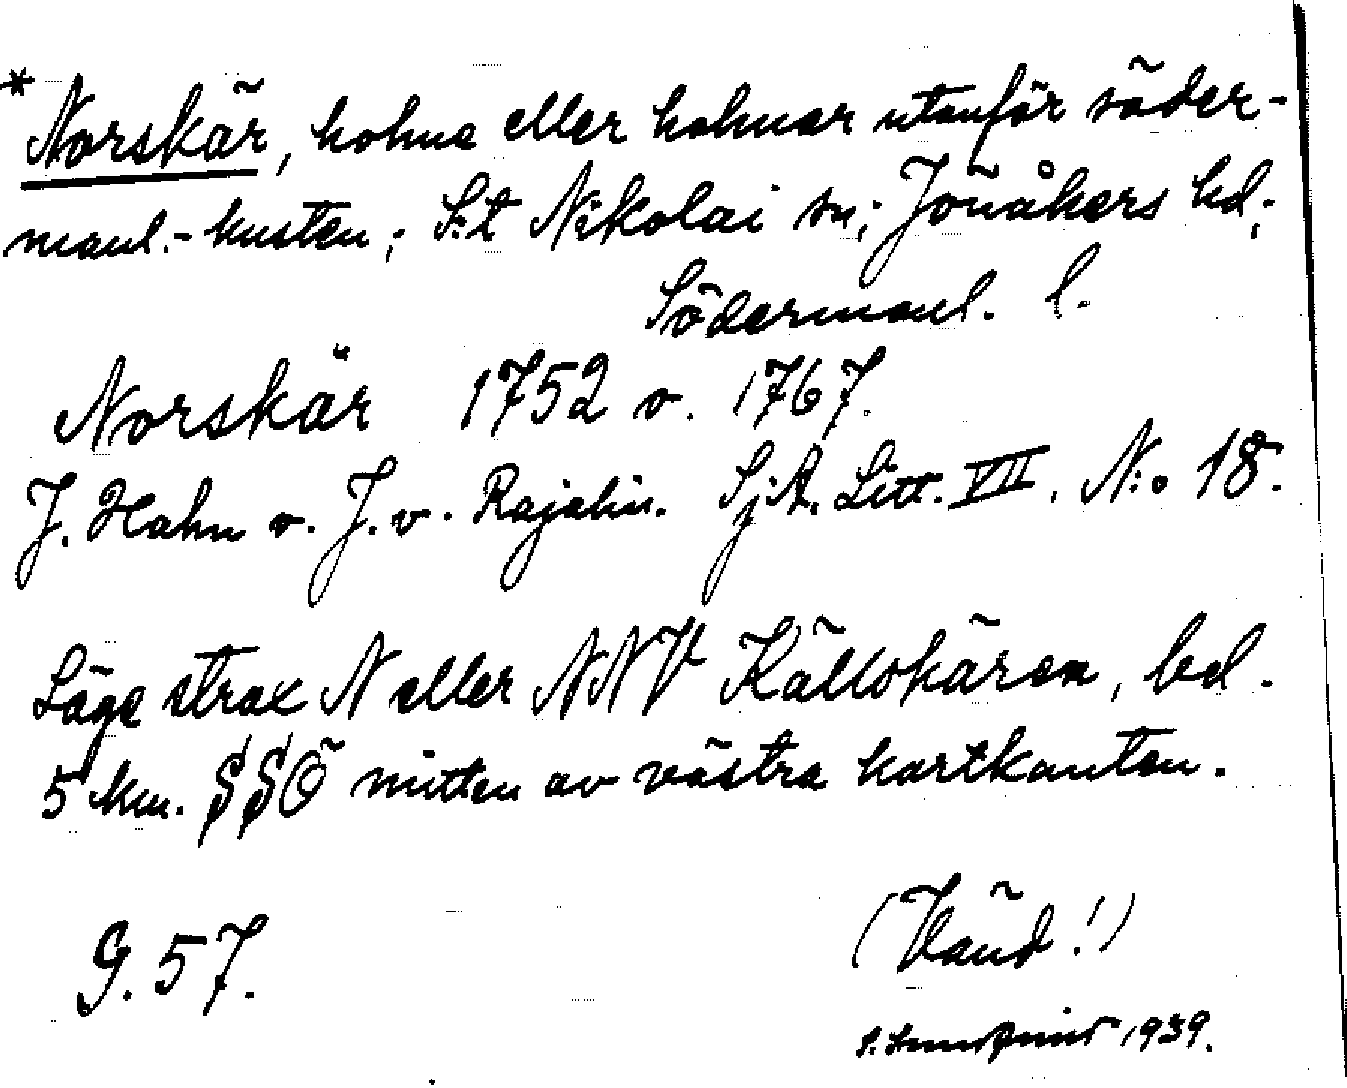 * Norskär, holme eller holmar utanför söder-
manl.-kusten; S:t Nikolai sn; Jönåkers hd;
Södermanl. l.
Norskär 1752 o. 1767.
J. Hahn o. J. v. Rajalin. Sj.A. Litt. VII. N:o 18.
Läge strax N eller NNV Källskären, bel.
5 km. SSÖ mitten av västra kartkanten.
G. 57.
(Vänd!)
1939.